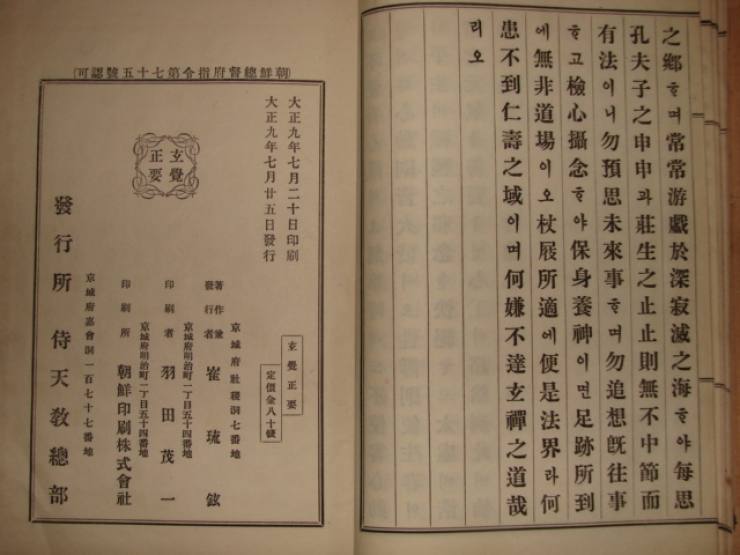 之鄕ᄒᆞ며常常游戱於深寂滅之海ᄒᆞ야每思
孔夫子之申申과莊生之止止則無不中節而
有法이니勿預思未來事ᄒᆞ며勿追想旣往事
ᄒᆞ고檢心攝念ᄒᆞ야保身養神이면足跡所到
에無非道場이오杖屐所適에便是法界라何
患不到仁壽之域이며何嫌不達玄禪之道哉
리오
(朝鮮總督府指令第七十五號認可)
大正九年七月二十日印刷
大正九年七月廿五日發行
玄覺
正要
玄覺正要
定價金八十錢
京城府社稷洞七番地
著作兼
發行者 崔琉鉉
京城府明治町一丁目五十四番地
印刷者 羽田茂一
京城府明治町一丁目五十四番地
印刷所 朝鮮印刷株式會社
京城府嘉會洞一百七十七番地
發行所 侍天敎總部